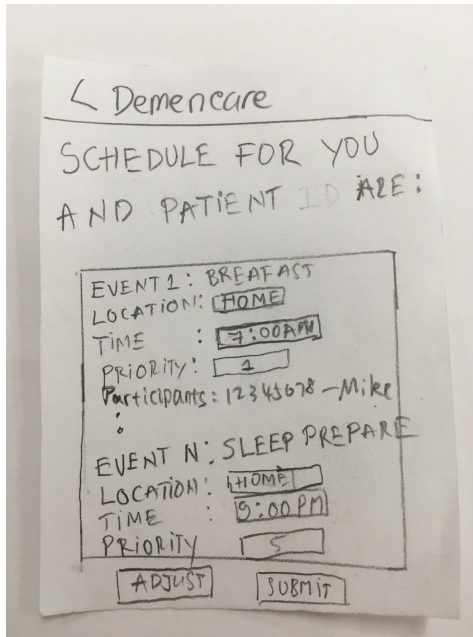 < Demencare
SCHEDULE FOR YOU
AND PATIENT ID ARE:
EVENT 1: BREAFAST
LOCATION: HOME
TIME : 7:00AM
PRIORITY: 1
Participants: 12345678 - Mike
:
EVENT N: SLEEP PREPARE
LOCATION: HOME
TIME : 9:00 PM
PRIORITY 5
ADJUST SUBMIT